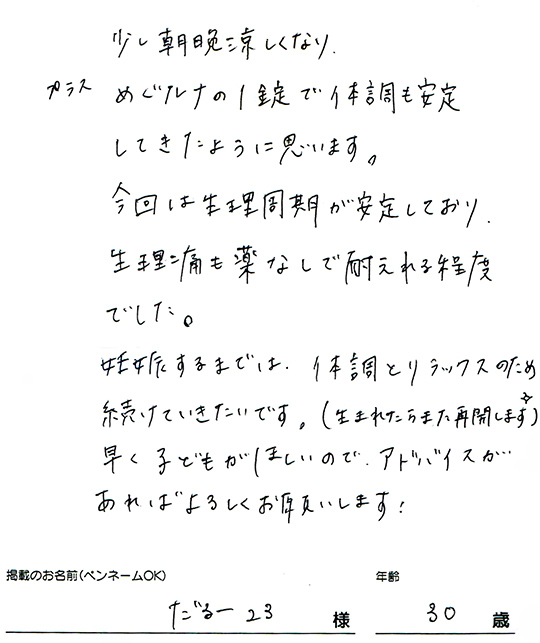 少し朝晩涼しくなり、
プラス めぐルナの1錠で体調も安定
してきたように思います。
今回は生理周期が安定しており、
生理痛も薬なしで耐えれる程度
でした。
妊娠するまでは、体調とリラックスのため
続けていきたいです。(生まれたらまた再開します✧)
早く子どもがほしいので、アドバイスが
あればよろしくお願いします!
掲載のお名前(ペンネームOK) 年齢
だるー23 様 30 歳